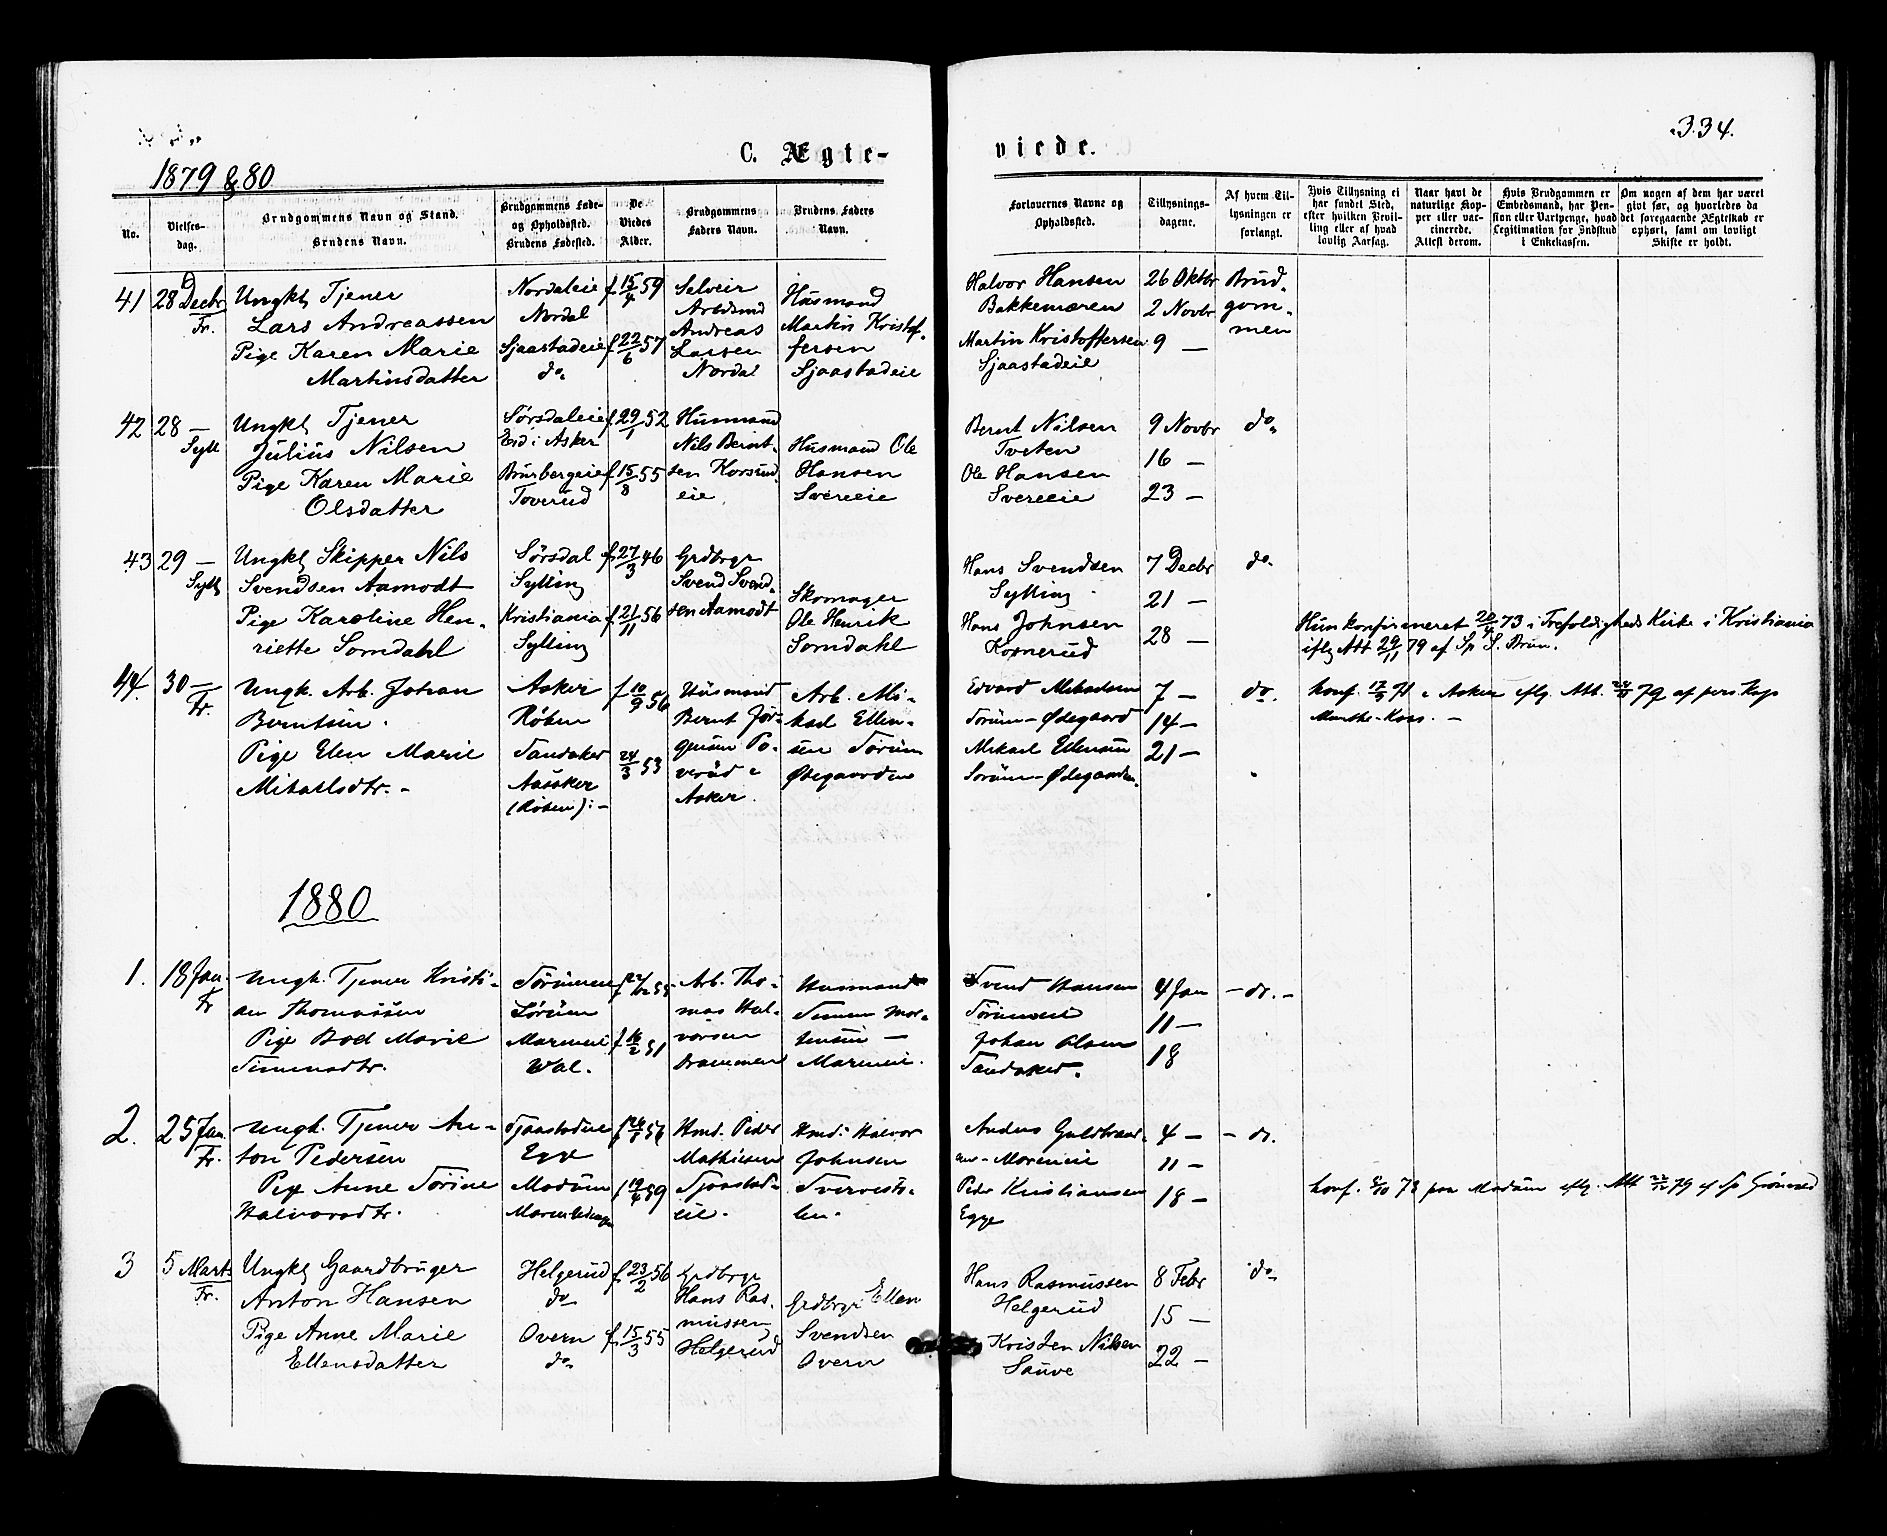 334.
C. Ægteviede.
1879 & 80
No.
Vielses-
dag.
Brudgommens Navn og Stand.
Brudens Navn.
Brudgommens Føde-
og Opholdssted.
Brudens Fødested.
De
Viedes
Alder.
Brudgommens
Faders Navn.
Brudens Faders
Navn.
Forlovernes Navne og
Opholdssted.
Tillysnings-
dagene.
Af hvem Til-
lysningen er
forlangt.
Hvis Tillysning ei
har fundet Sted,
efter hvilken Bevil-
ling eller af hvad
lovlig Aarsag.
Naar havt de
naturlige Kop-
per eller vac-
cinerede.
Attest derom.
Hvis Brudgommen er
Embedsmand, har Pen-
sion eller Vartpenge, hvad
Legitimation for Indskud
i Enkekassen.
Om nogen af dem har været
givt før, og hvorledes da
det foregaaende Ægteskab er
ophørt, samt om lovligt
Skifte er holdt.
41
28 Decbr
Fr.
Ungkl Tjener
Lars Andreassen
Pige Karen Marie
Martinsdatter
Nordaleie
Nordal
Sjaastadeie
do
f. 15/4 59
f. 22/6 57
Selveir
Arbdsmd
Andreas
Larsen
Nordal
Husmand
Martin Kristof-
fersen
Sjaastadeie
Halvor Hansen
Bakkemæren
Martin Kristoffersen
Sjaastadeie
26 Oktbr
2 Novbr
9 —
Brud-
gom-
men
42
28 —
Syll
Ungkl Tjener
Julius Nilsen
Pige Karen Marie
Olsdatter
Sørsdaleie
Eid i Asker
Brusbergeie
Toverud
f. 29/1 52
f. 15/8 55
Husmand
Nils Bernt-
sen Korsrud-
eie
Husmand Ole
Hansen
Svereeie
Bernt Nilsen
Tveten
Ole Hansen
Svereeie
9 Novbr
16 —
23 —
do
43
29 —
Syll
Ungkl Skipper Nils
Svendsen Aamodt
Pige Karoline Hen-
riette Somdahl
Sørsdal
Sylling
Kristiania
Sylling
f. 27/3 46
f. 21/11 56
Grdbrgr
Svend Svend-
sen Aamodt
Skomager
Ole Henrik
Somdahl
Hans Svendsen
Sylling
Hans Johnsen
Kornerud
7 Decbr
21 —
28 —
do
Hun konfirmeret 20/4 73 i Trefoldigheds Kirke i Kristiania
iflg Att 29/11 79 af Sp S. Brun.
44.
30 —
Fr.
Ungk. Arb. Johan
Berntsen.
Pige Elen Marie
Mikaelsdtr. -
Asker
Røken
Tandaker
Aasaker
(Røken):-
f 10/9 56
24/3 53
Husmand
Bernt Jør-
gensen To-
verud i
Asker.
Arb. Mi-
kael Ellen-
sen Sørum
Ødegaarden
Edvard Mikaelsen
Sørum-Ødegaard
Mikael Ellensen
Sorum-Ødegaarden
7 —
14 —
21 —
do.
konf. 17/9 71 i Asker eflg. Att. 24/11 79 af pers Kap
1880
1.
18 Jan.
Fr
Ungk. Tjener Kristi-
an Thomassen
Pige Boel Marie
Simensdtr.
Sørumeie
Sørum
f. 16/2 51
Arb. Tho-
mas Hal-
vorsen
Drammen
Husmand
Simen Mor-
tensen —
Svend Hansen
Sørumeie
Johan Olsen
Tandaker.
4 Jan
11 —
18
- do. -
2.
25 Jan.
Fr.
Ungk. Tjener An-
ton Pedersen
Pige Anne Sørine
Halvorsdtr.
Sjaastadeie
Egge
Modum
f 19/4 59
Hmd. Peder
Mathisen
Sjaastad-
eie.
Hmd. Halvor
Johnsen
Peder Kristiansen
Egge
4 —
11 —
18 —
- do.
konf. 5/10 73 paa Modum eflg. Att 79 af Sp
3
5 Marts
Fr.
Ungkl Gaardbruger
Anton Hansen
Pige Anne Marie
Ellensdatter
Helgerud
do
Overn
do
f. 23/2 56
f. 15/3 55
Grdbrgr
Hans Ras-
mussen
Helgerud
Grdbrgr Ellen
Svendsen
Overn
Hans Rasmussen
Helgerud
Kristen Nilsen
Sauve
8 Febr
15 —
22 —
do